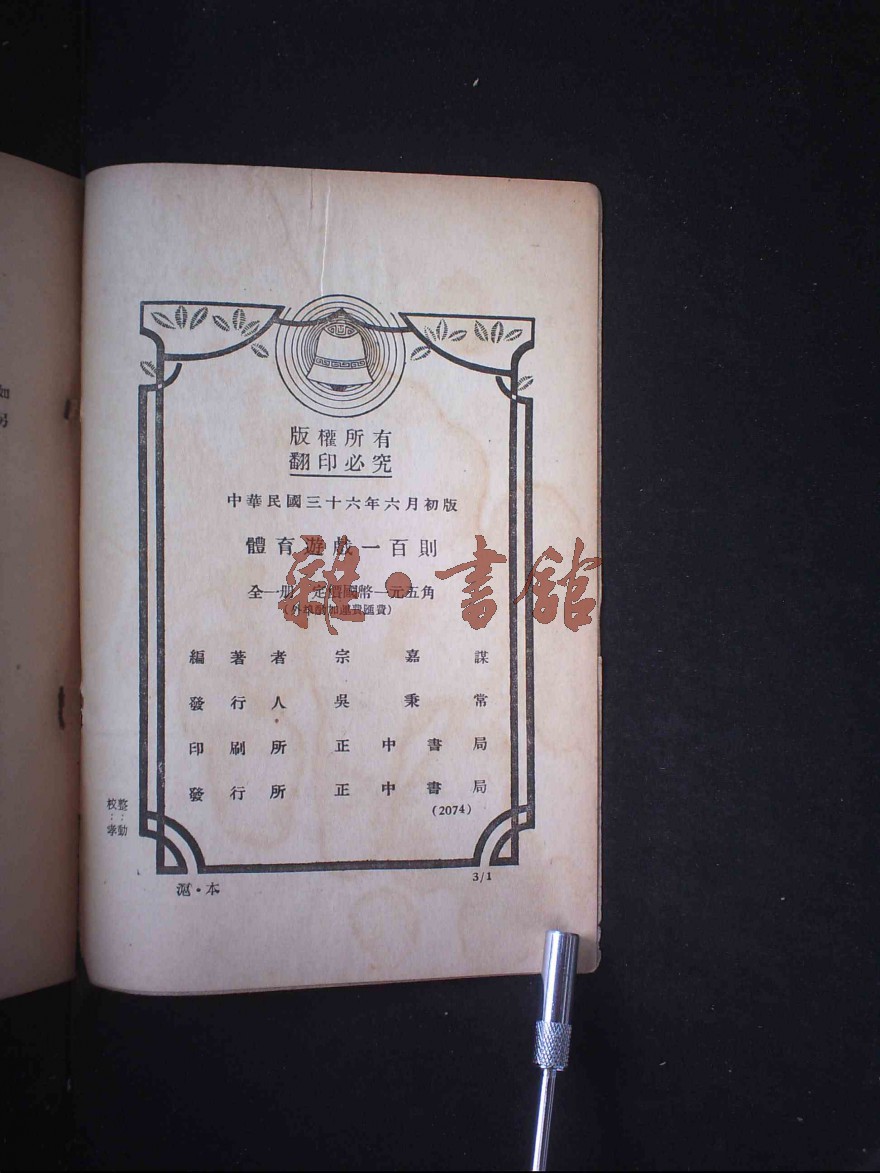 版權所有
翻印必究
中華民國三十六年六月初版
體育遊戲一百則
全一册 定價國幣一元五角
(外埠酌加運費匯費)
編著者 宗嘉謀
發行人 吳秉常
印刷所 正中書局
發行所 正中書局
(2074)
整:勳
校:孝
滬·本
3/1
雜·書館
如
另